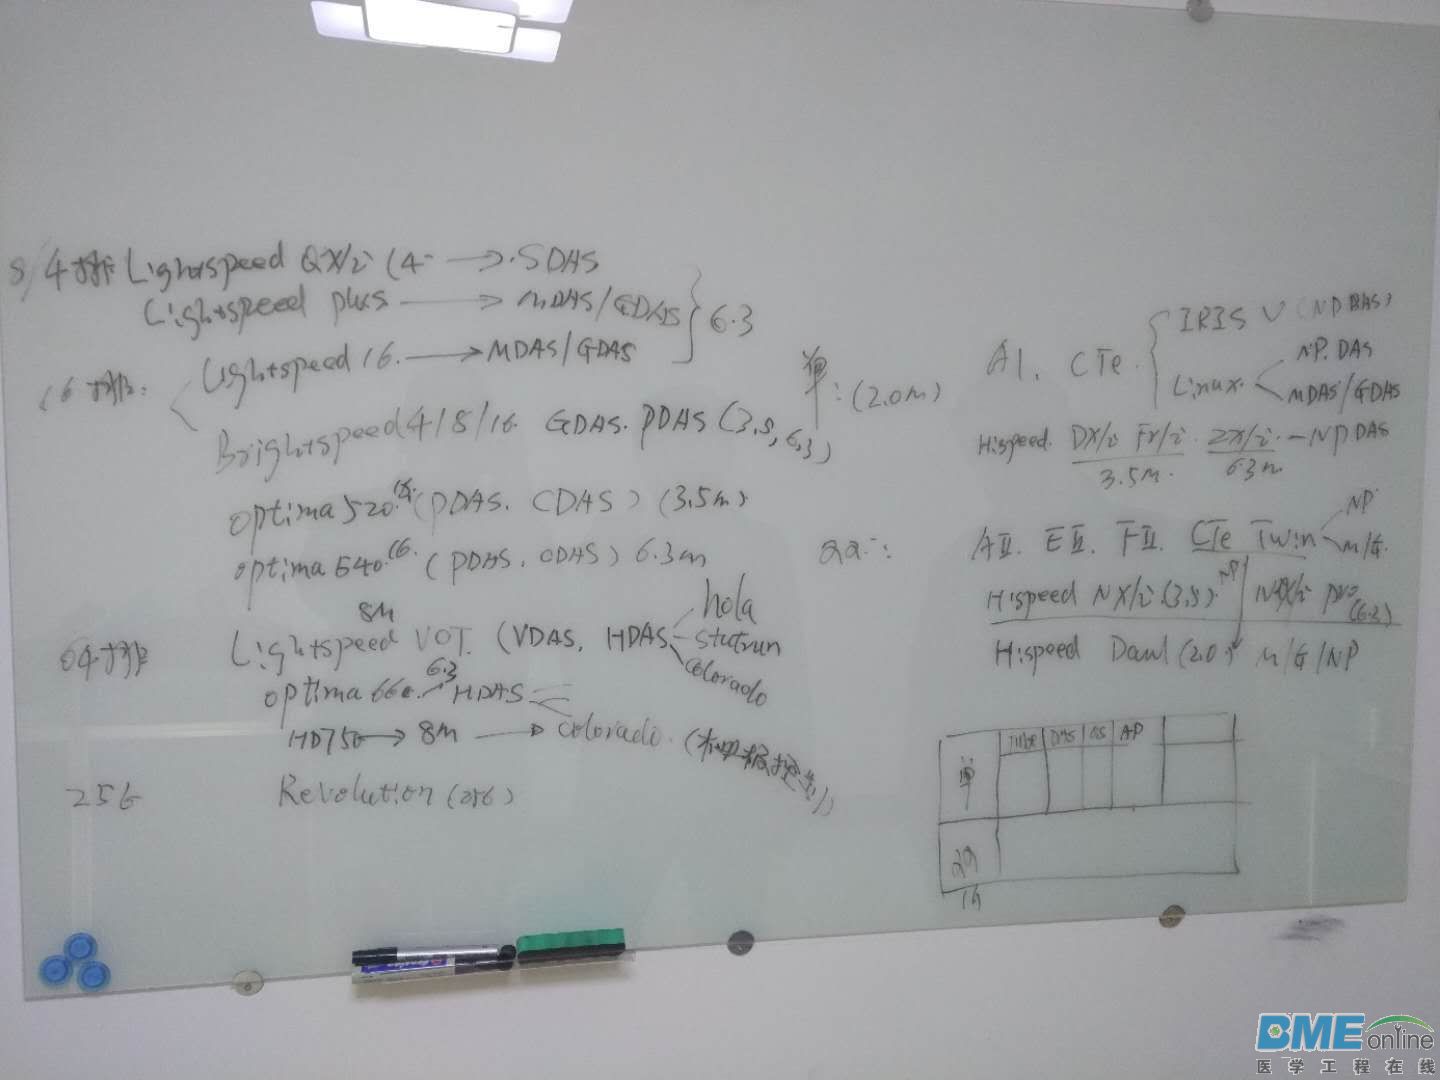 8/4排 Lightspeed QX/i (4 → SDAS
Lightspeed plus → MDAS/GDAS } 6.3
16排: Lightspeed 16. → MDAS/GDAS
Brightspeed 4/8/16 GDAS. PDAS (3.5, 6.3)
optima 520 16. (PDAS. CDAS) (3.5m)
optima 540 16. (PDAS. CDAS) 6.3m
8M
64排 Lightspeed VOT. (VDAS, HDAS
hola
colorado
optima 660. 6.3 HDAS
HD750 → 8M → colorado.
256 Revolution (256)
单: (2.0M)
A1. CTe.
IRIS V (NPDAS)
Linux.
NP. DAS
MDAS/GDAS
Hispeed DX/i FX/i ZX/i — NPDAS
3.5M. 6.3m
双: AII. EII. FII. CTe Twin
NP
M/G.
Hispeed NX/i (3.5) NP NX/i pro (6.3)
Hispeed Daul (2.0) M/G/NP
Tube DAS OS AP
单
双
16
BME online
医学工程在线